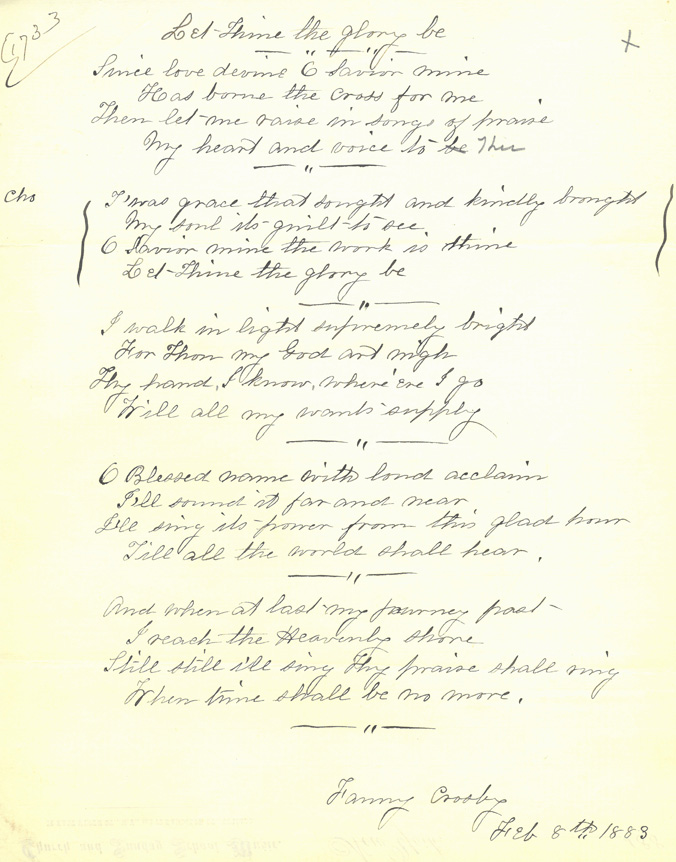 G733
+
Let Thine the glory be
Since love devine O Savior mine
Has borne the cross for me
Then let me raise in songs of praise
My heart and voice to be Thee
Cho
T'was grace that sought and kindly brought
My soul its guilt to see
O Savior mine the work is thine
Let Thine the glory be
I walk in light supremely bright
For Thou my God art nigh
Thy hand, I know, where'ere I go
Will all my wants supply
O Blessed name with loud acclaim
I'll sound it far and near
I'll sing its power from this glad hour
Till all the world shall hear.
And when at last my journey past
I reach the Heavenly shore
Still still ill sing Thy praise shall ring
When time shall be no more.
Fanny Crosby
Feb 8th 1883